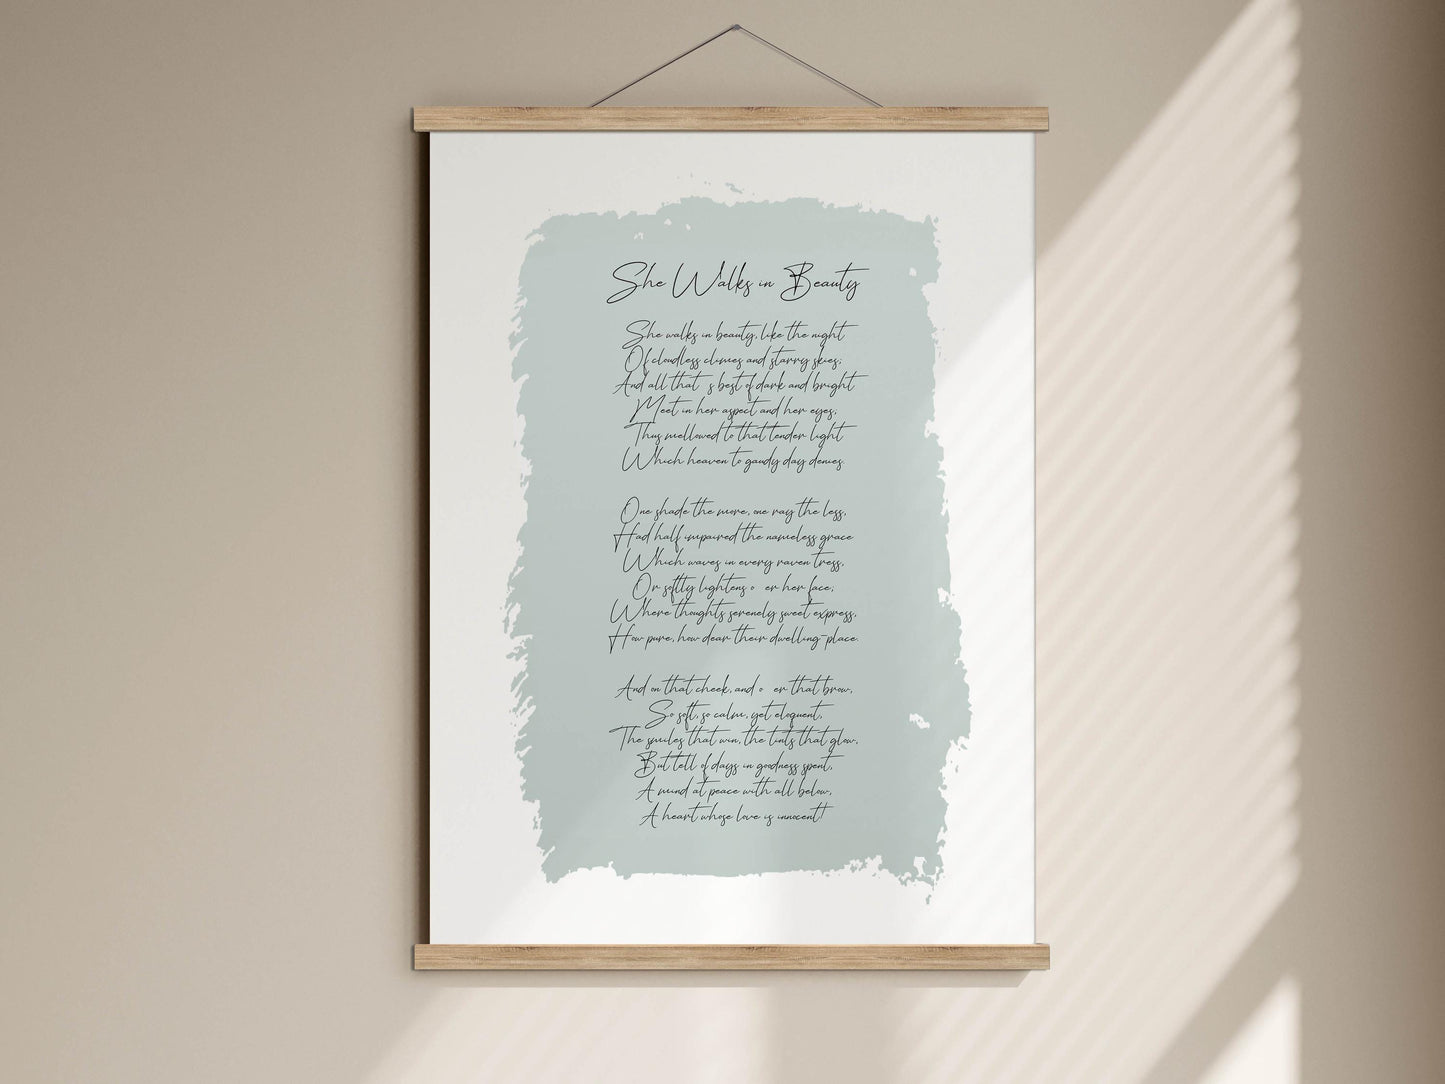 She Walks in Beauty
She walks in beauty, like the night
Of cloudless climes and starry skies;
And all that s best of dark and bright
Meet in her aspect and her eyes;
Thus mellowed to that tender light
Which heaven to gaudy day denies.
One shade the more, one ray the less,
Had half impaired the nameless grace
Which waves in every raven tress,
Or softly lightens o er her face;
Where thoughts serenely sweet express,
How pure, how dear their dwelling-place.
And on that cheek, and o er that brow,
So soft, so calm, yet eloquent,
The smiles that win, the tints that glow,
But tell of days in goodness spent,
A mind at peace with all below,
A heart whose love is innocent!